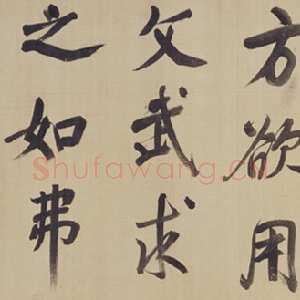 方欲用
文武求
之如弗
Shufawang.cn